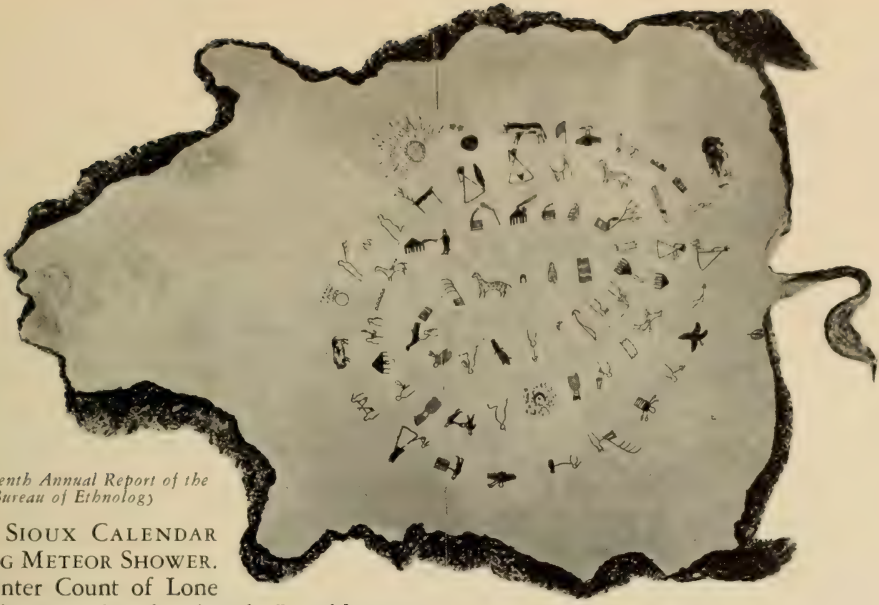 enth Annual Report of the
Bureau of Ethnology
SIOUX CALENDAR
G METEOR SHOWER.
nter Count of Lone